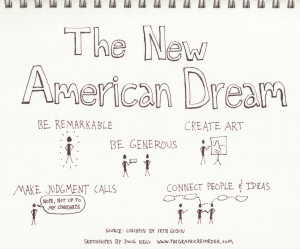 The New
American Dream
BE REMARKABLE
BE GENEROUS
CREATE ART
MAKE JUDGMENT CALLS
NOPE, NOT UP TO
MY STANDARDS
CONNECT PEOPLE & IDEAS
SOURCE: LINCHPIN BY SETH GODIN
SKETCHNOTES BY DOUG NEILL WWW.THEGRAPHICRECORDER.COM